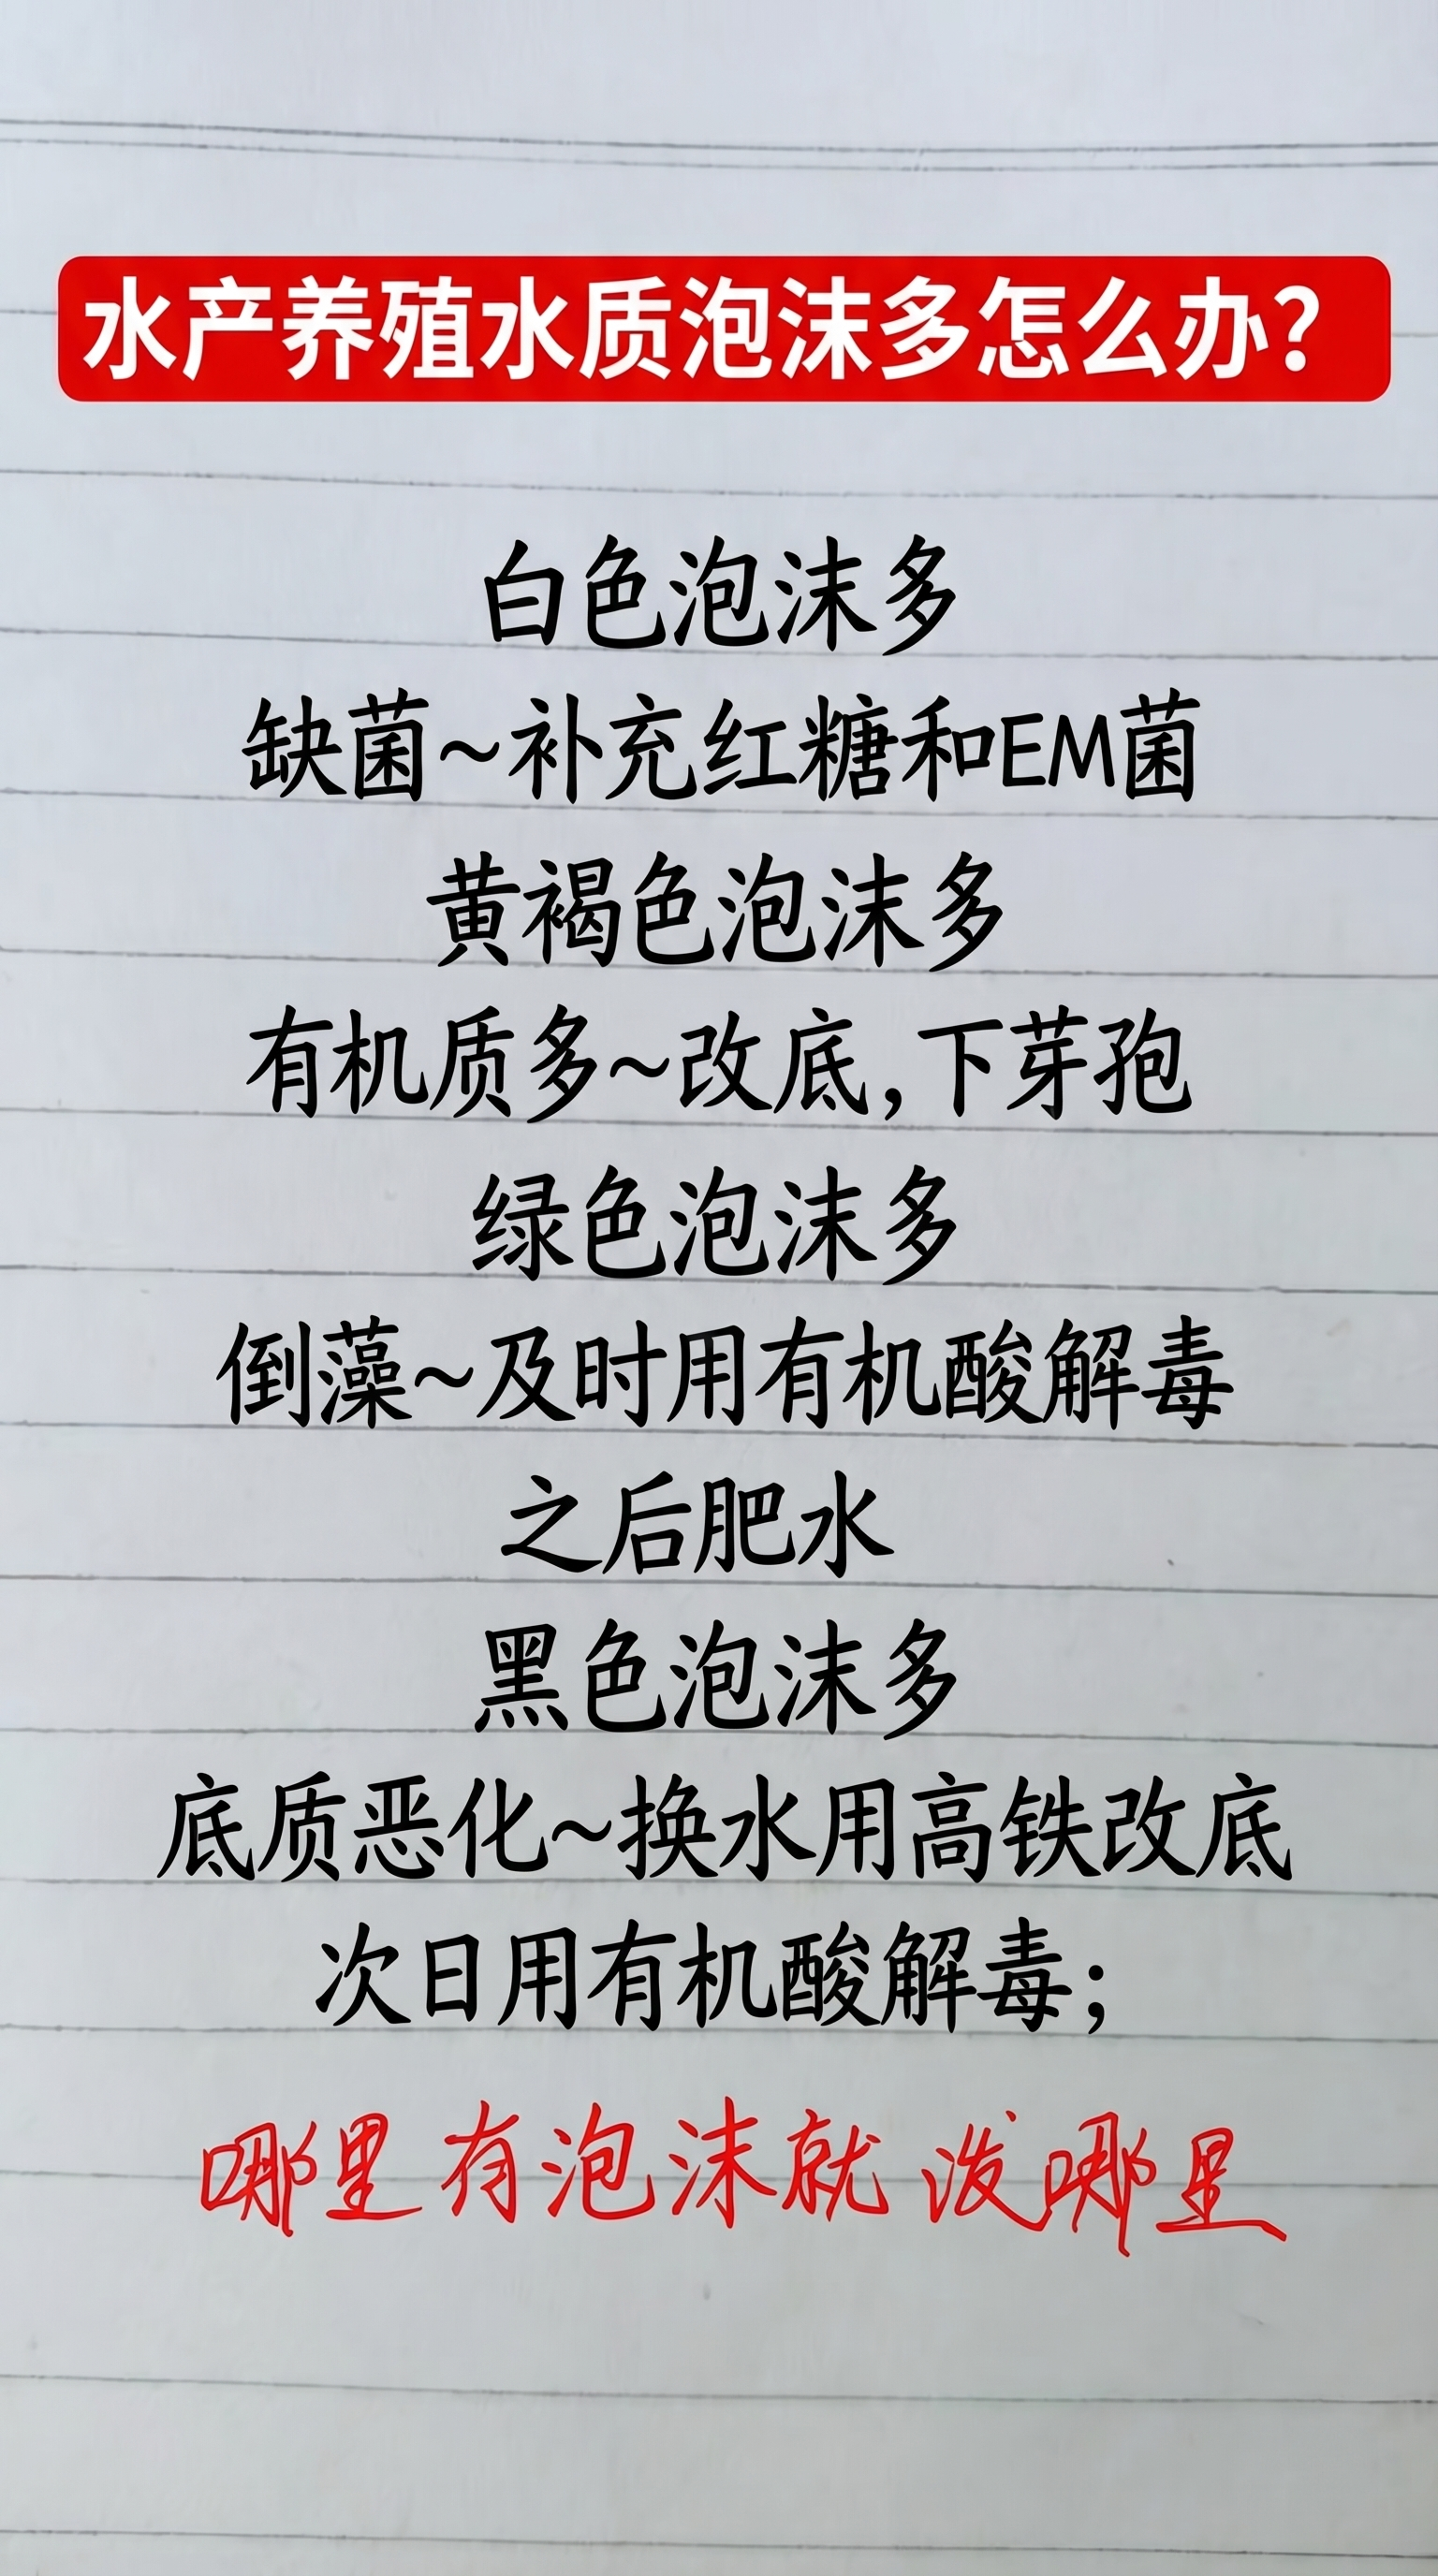 水产养殖水质泡沫多怎么办?
白色泡沫多
缺菌~补充红糖和EM菌
黄褐色泡沫多
有机质多~改底,下芽孢
绿色泡沫多
倒藻~及时用有机酸解毒
之后肥水
黑色泡沫多
底质恶化~换水用高铁改底
次日用有机酸解毒;
哪里有泡沫就泼哪里